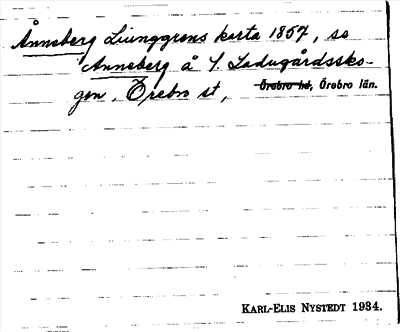 Ånnsberg Ljunggrens karta 1857, se
Annsberg å f. Ladugårdssko-
gen. Örebro st, Örebro hd, Örebro län.
KARL-ELIS NYSTEDT 1934.